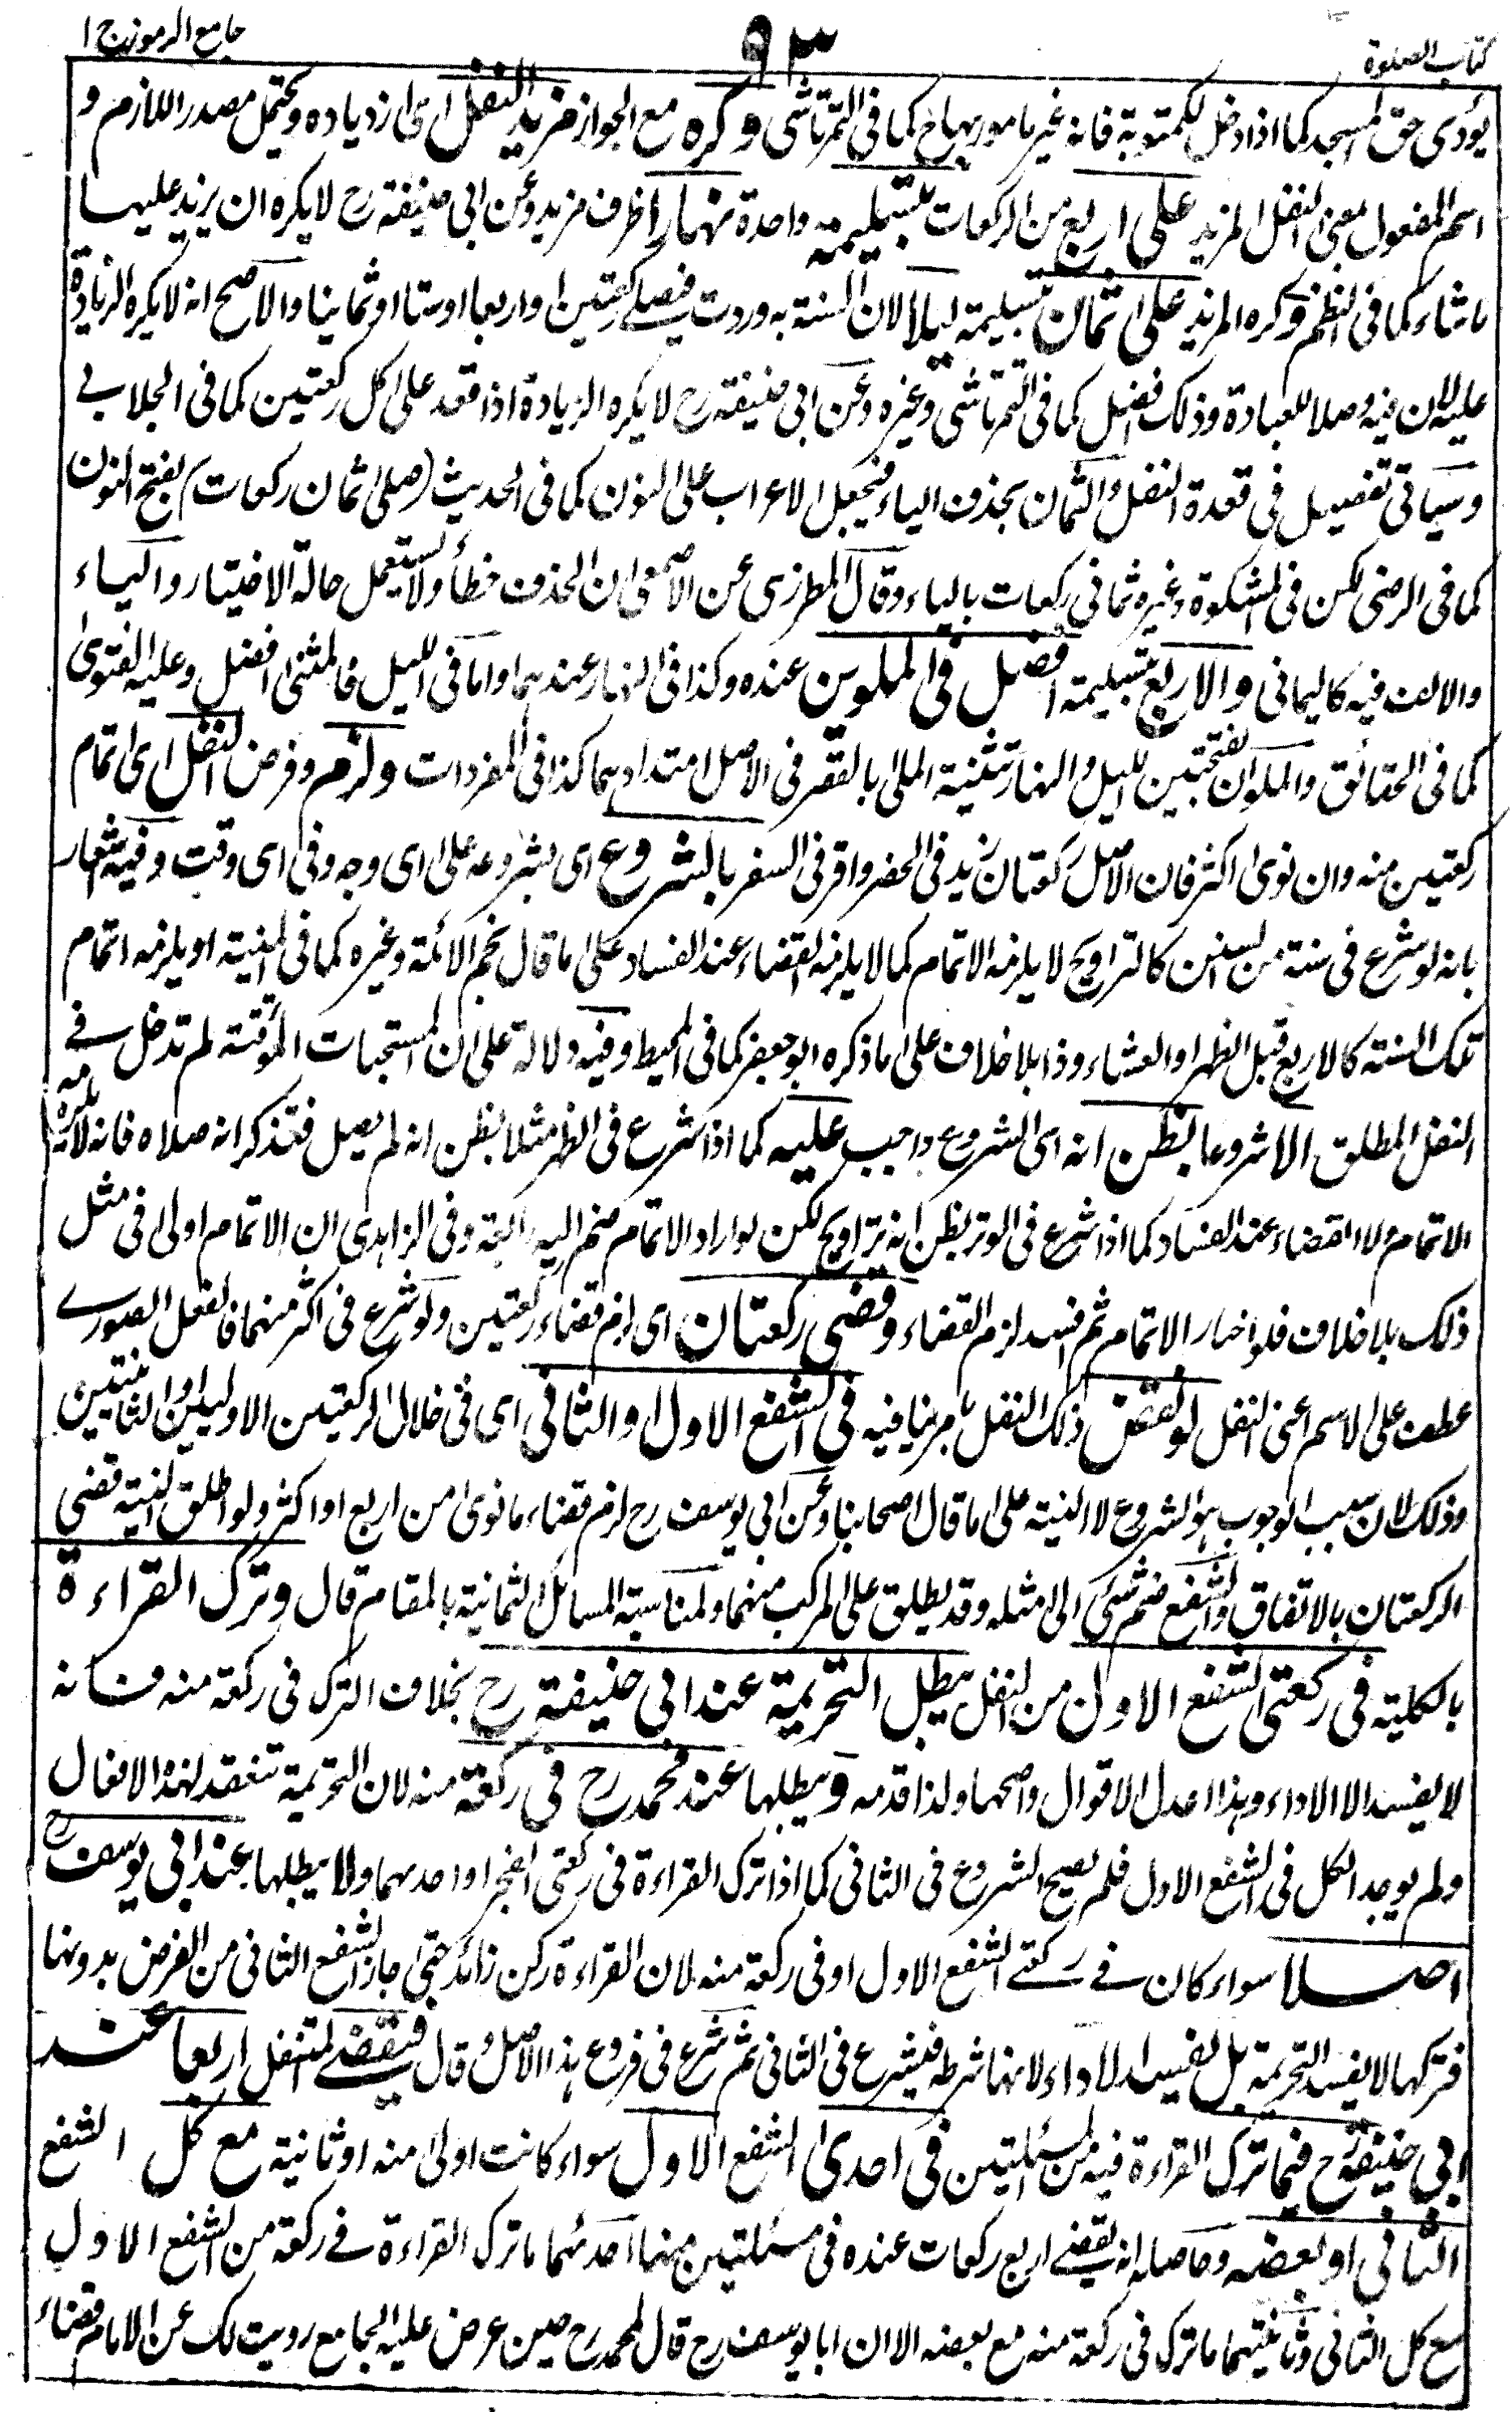 كتاب الصلوة
٩٣
جامع الرموز ج ١
يؤدى حق المسجد كما اذا دخل لمكتوبة فانه غير مامور بها ح كما فى التمرتاشى وكره مع الجواز مزيد النفل اى ازدياده ويحتمل مصدر اللازم و
اسم المفعول بمعنى النفل المزيد على اربع من الركعات بتسليمة واحدة نهارا ظرف مزيد وعن ابى حنيفة رح لا يكره ان يزيد عليها
ما شاء كما فى النظم وكره المزيد على ثمان بتسليمة ليلا لان السنة به وردت فيصلى ركعتين او اربعا او ستا او ثمانيا والاصح انه لا يكره الزيادة
عليه لان فيه وصلا للعبادة وذلك افضل كما فى التمرتاشى وغيره وعن ابى حنيفة رح لا يكره الزيادة اذا قعد على كل ركعتين كما فى الجلابى
وسياتى تفصيل فى قعدة النفل والثمان بحذف الياء فيجعل الاعراب على النون كما فى الحديث (صلى ثمان ركعات) بفتح النون
كما فى الرضى لكن فى المشكوة وغيره ثمانى ركعات بالياء وقال المطرزى عن الاصمعى ان الحذف خطأ ولا يستعمل حالة الاختيار والياء
والالف فيه كاليمانى والاربع بتسليمة افضل فى الملوين عنده وكذا فى النهار عندهما واما فى الليل فالمثنى افضل وعليه الفتوى
كما فى الحقائق والملوان بفتحتين الليل والنهار تثنية الملى بالقصر فى الاصل امتدادهما كذا فى المفردات ولزم وفرض النفل اى اتمام
ركعتين منه وان نوى اكثر فان الاصل ركعتان زيد فى الحضر واقر فى السفر بالشروع اى بشروعه على اى وجه وفى اى وقت وفيه اشعار
بانه لو شرع فى سنة من السنن كالتراويح لا يلزمه الاتمام كما لا يلزمه القضاء عند الفساد على ما قال نجم الائمة وغيره كما فى المنية او يلزمه اتمام
تلك السنة كالاربع قبل الظهر او العشاء وذا بلا خلاف على ما ذكره ابو جعفر كما فى المحيط وفيه دلالة على ان المستحبات المؤقتة لم تدخل فى
النفل المطلق الا شروعا بظن انه اى الشروع واجب عليه كما اذا شرع فى الظهر مثلا بظن انه لم يصل فتذكر انه صلاه فانه لا يلزمه
الاتمام ولا القضاء عند الفساد كما اذا شرع فى الوتر بظن انه تراويح لكن لو اراد الاتمام ضم اليه رابعة وفى الزاهدى ان الاتمام اولى فى مثل
ذلك بلا خلاف فلو اختار الاتمام ثم افسد لزم القضاء وقضى ركعتان اى لزم قضاء ركعتين ولو شرع فى اكثر منهما فالفعل الصورى
عطف على الاسم اعنى النفل لو نقض ذلك النفل بامر ينافيه فى الشفع الاول او الثانى اى فى خلال الركعتين الاوليين او الثانيتين
وذلك لان سبب الوجوب هو الشروع لا النية على ما قال اصحابنا وعن ابى يوسف رح لزم قضاء ما نوى من اربع او اكثر ولو اطلق النية قضى
الركعتان بالاتفاق والشفع ضم شئ الى مثله وقد يطلق على المركب منهما ولمناسبة المسائل الثمانية بالمقام قال وترك القراءة
بالكلية فى ركعتى الشفع الاول من النفل يبطل التحريمة عند ابى حنيفة رح بخلاف الترك فى ركعة منه فانه
لا يفسد الا الاداء وهذا اعدل الاقوال واصحها ولذا قدمه ويبطلها عند محمد رح فى ركعة منه لان التحريمة تنعقد لهذه الافعال
ولم يوجد الكل فى الشفع الاول فلم يصح الشروع فى الثانى كما اذا ترك القراءة فى ركعتى الفجر او احدىهما ولا يبطلها عند ابى يوسف رح
اصلا سواء كان فى ركعتى الشفع الاول او فى ركعة منه لان القراءة ركن زائد حتى جاز الشفع الثانى من الفرض بدونها
فتركها لا يفسد التحريمة بل يفسد الاداء لانها شرطه فيشرع فى الثانى ثم شرع فى فروع هذا الاصل وقال فيقضى المتنفل اربعا عند
ابى حنيفة رح فيما ترك القراءة فيه من المسئلتين فى احدى الشفع الاول سواء كانت اولى منه او ثانية مع كل الشفع
الثانى او بعضه وحاصله انه يقضى اربع ركعات عنده فى مسئلتين منها احدٰهما ما ترك القراءة فى ركعة من الشفع الاول
مع كل الثانى وثانيتهما ما ترك فى ركعة منه مع بعضه الا ان ابا يوسف رح قال لمحمد رح حين عرض عليه الجامع رويت لك عن الامام قضاء